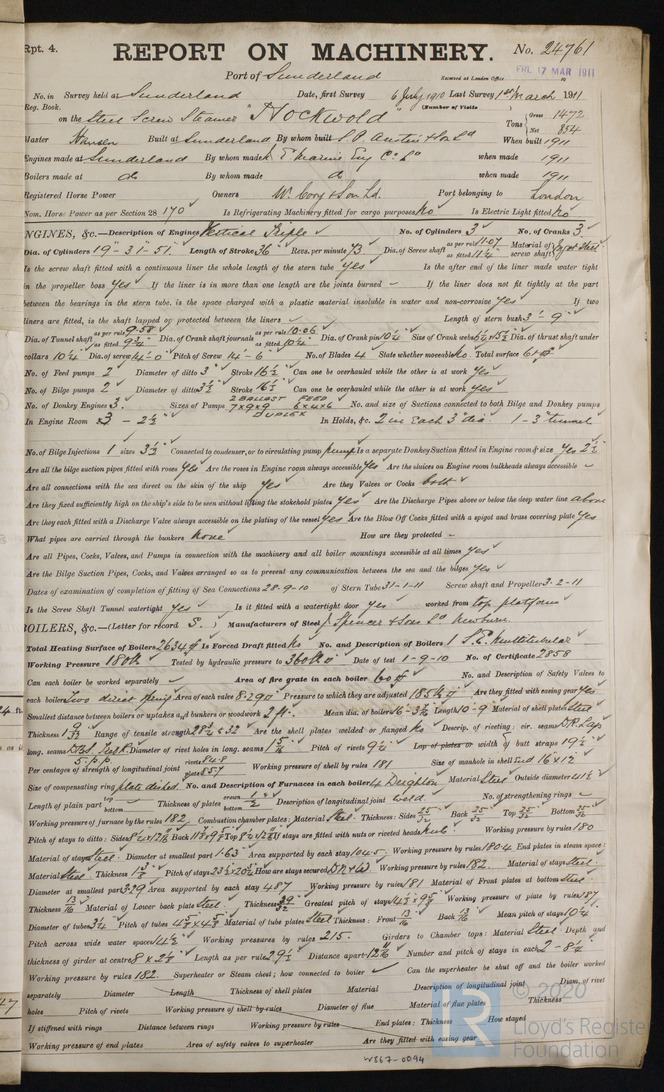 Rpt. 4.
REPORT ON MACHINERY.
No. 24761
Port of Sunderland
Received at London Office
FRI. 17 MAR 1911
No. in Survey held at Sunderland Date, first Survey 6 July 1910 Last Survey 1st March 1911
Reg. Book. (Number of Visits
on the Steel Screw Steamer "Hockwold"
Tons Gross 1472
Net 854
Master Hansen Built at Sunderland By whom built S.P. Austin & Son Ld When built 1911
Engines made at Sunderland By whom made N.E. Marine Eng Co Ld when made 1911
Boilers made at do By whom made do when made 1911
Registered Horse Power Owners W. Cory & Son Ld. Port belonging to London
Nom. Horse Power as per Section 28 170 Is Refrigerating Machinery fitted for cargo purposes No Is Electric Light fitted No
ENGINES, &c.—Description of Engines Vertical Triple No. of Cylinders 3 No. of Cranks 3
Dia. of Cylinders 19"-31"-51" Length of Stroke 36" Revs. per minute 73 Dia. of Screw shaft as per rule 11.07 as fitted 11¼ Material of screw shaft Ingot Steel
Is the screw shaft fitted with a continuous liner the whole length of the stern tube Yes Is the after end of the liner made water tight
in the propeller boss Yes If the liner is in more than one length are the joints burned – If the liner does not fit tightly at the part
between the bearings in the stern tube, is the space charged with a plastic material insoluble in water and non-corrosive Yes If two
liners are fitted, is the shaft lapped or protected between the liners – Length of stern bush 3'-9"
Dia. of Tunnel shaft as per rule 9.58 as fitted 9¾ Dia. of Crank shaft journals as per rule 10.06 as fitted 10¼ Dia. of Crank pin 10¼ Size of Crank webs Dia. of thrust shaft under
collars 10¼ Dia. of screw 14-0 Pitch of Screw 14-6 No. of Blades 4 State whether moveable No Total surface 61
No. of Feed pumps 2 Diameter of ditto 3" Stroke 16½ Can one be overhauled while the other is at work Yes
No. of Bilge pumps 2 Diameter of ditto 3½ Stroke 16½ Can one be overhauled while the other is at work Yes
No. of Donkey Engines 3 Sizes of Pumps 2 Ballast 7x9x9 Feed 6x4x6 Duplex No. and size of Suctions connected to both Bilge and Donkey pumps
In Engine Room 3 - 2½ In Holds, &c. 2 in each 3" dia. 1-3" tunnel
No. of Bilge Injections 1 sizes 3½ Connected to condenser, or to circulating pump pump Is a separate Donkey Suction fitted in Engine room & size Yes 2½
Are all the bilge suction pipes fitted with roses Yes Are the roses in Engine room always accessible Yes Are the sluices on Engine room bulkheads always accessible –
Are all connections with the sea direct on the skin of the ship Yes Are they Valves or Cocks both
Are they fixed sufficiently high on the ship's side to be seen without lifting the stokehold plates Yes Are the Discharge Pipes above or below the deep water line above
Are they each fitted with a Discharge Valve always accessible on the plating of the vessel Yes Are the Blow Off Cocks fitted with a spigot and brass covering plate Yes
What pipes are carried through the bunkers None How are they protected –
Are all Pipes, Cocks, Valves, and Pumps in connection with the machinery and all boiler mountings accessible at all times Yes
Are the Bilge Suction Pipes, Cocks, and Valves arranged so as to prevent any communication between the sea and the bilges Yes
Dates of examination of completion of fitting of Sea Connections 28-9-10 of Stern Tube 31-1-11 Screw shaft and Propeller 3-2-11
Is the Screw Shaft Tunnel watertight Yes Is it fitted with a watertight door Yes worked from top platform
BOILERS, &c.—(Letter for record S. Manufacturers of Steel J. Spencer & Sons Ld Newburn
Total Heating Surface of Boilers 2634 Is Forced Draft fitted No No. and Description of Boilers 1 S.E. Multitubular
Working Pressure 180 lb Tested by hydraulic pressure to 360 lb Date of test 1-9-10 No. of Certificate 2858
Can each boiler be worked separately – Area of fire grate in each boiler 60 No. and Description of Safety Valves to
each boiler Two direct spring Area of each valve 8.290 Pressure to which they are adjusted 185 lb Are they fitted with easing gear Yes
Smallest distance between boilers or uptakes and bunkers or woodwork 2 ft. Mean dia. of boilers Length 10-9 Material of shell plates Steel
Thickness 1 9/32 Range of tensile strength 28½ & 32 Are the shell plates welded or flanged No Descrip. of riveting: cir. seams D.R. Lap
long. seams Diameter of rivet holes in long. seams 1 5/16 Pitch of rivets 9½ Lap of plates or width of butt straps 19½
Per centages of strength of longitudinal joint rivets 84.8 plates 85.7 Working pressure of shell by rules 181 Size of manhole in shell End 16x12
Size of compensating ring plate dished No. and Description of Furnaces in each boiler 4 Deighton Material Steel Outside diameter 41½
Length of plain part top bottom Thickness of plates crown bottom ½ Description of longitudinal joint weld No. of strengthening rings –
Working pressure of furnace by the rules 182 Combustion chamber plates: Material Steel Thickness: Sides 25/32 Back 25/32 Top 25/32 Bottom 25/32
Pitch of stays to ditto: Sides Back Top If stays are fitted with nuts or riveted heads Nuts Working pressure by rules 180
Material of stays Steel Diameter at smallest part 1.63 Area supported by each stay 104.5 Working pressure by rules 180.4 End plates in steam space:
Material Steel Thickness Pitch of stays 23½x20½ How are stays secured Working pressure by rules 182 Material of stays Steel
Diameter at smallest part 3.29 Area supported by each stay 487 Working pressure by rules 181 Material of Front plates at bottom Steel
Thickness 13/16 Material of Lower back plate Steel Thickness 29/32 Greatest pitch of stays Working pressure of plate by rules 187
Diameter of tubes 3¼ Pitch of tubes Material of tube plates Steel Thickness: Front 13/16 Back 13/16 Mean pitch of stays 10¼
Pitch across wide water spaces 14½ Working pressures by rules 215 Girders to Chamber tops: Material Steel Depth and
thickness of girder at centre Length as per rule 29½ Distance apart Number and pitch of stays in each 2 - 8¼
Working pressure by rules 182 Superheater or Steam chest; how connected to boiler Can the superheater be shut off and the boiler worked
separately Diameter Length Thickness of shell plates Material Description of longitudinal joint Diam. of rivet
holes Pitch of rivets Working pressure of shell by rules Diameter of flue Material of flue plates Thickness
If stiffened with rings Distance between rings Working pressure by rules End plates: Thickness How stayed
Working pressure of end plates Area of safety valves to superheater Are they fitted with easing gear
W367-0094
© 2020
Lloyd's Register
Foundation